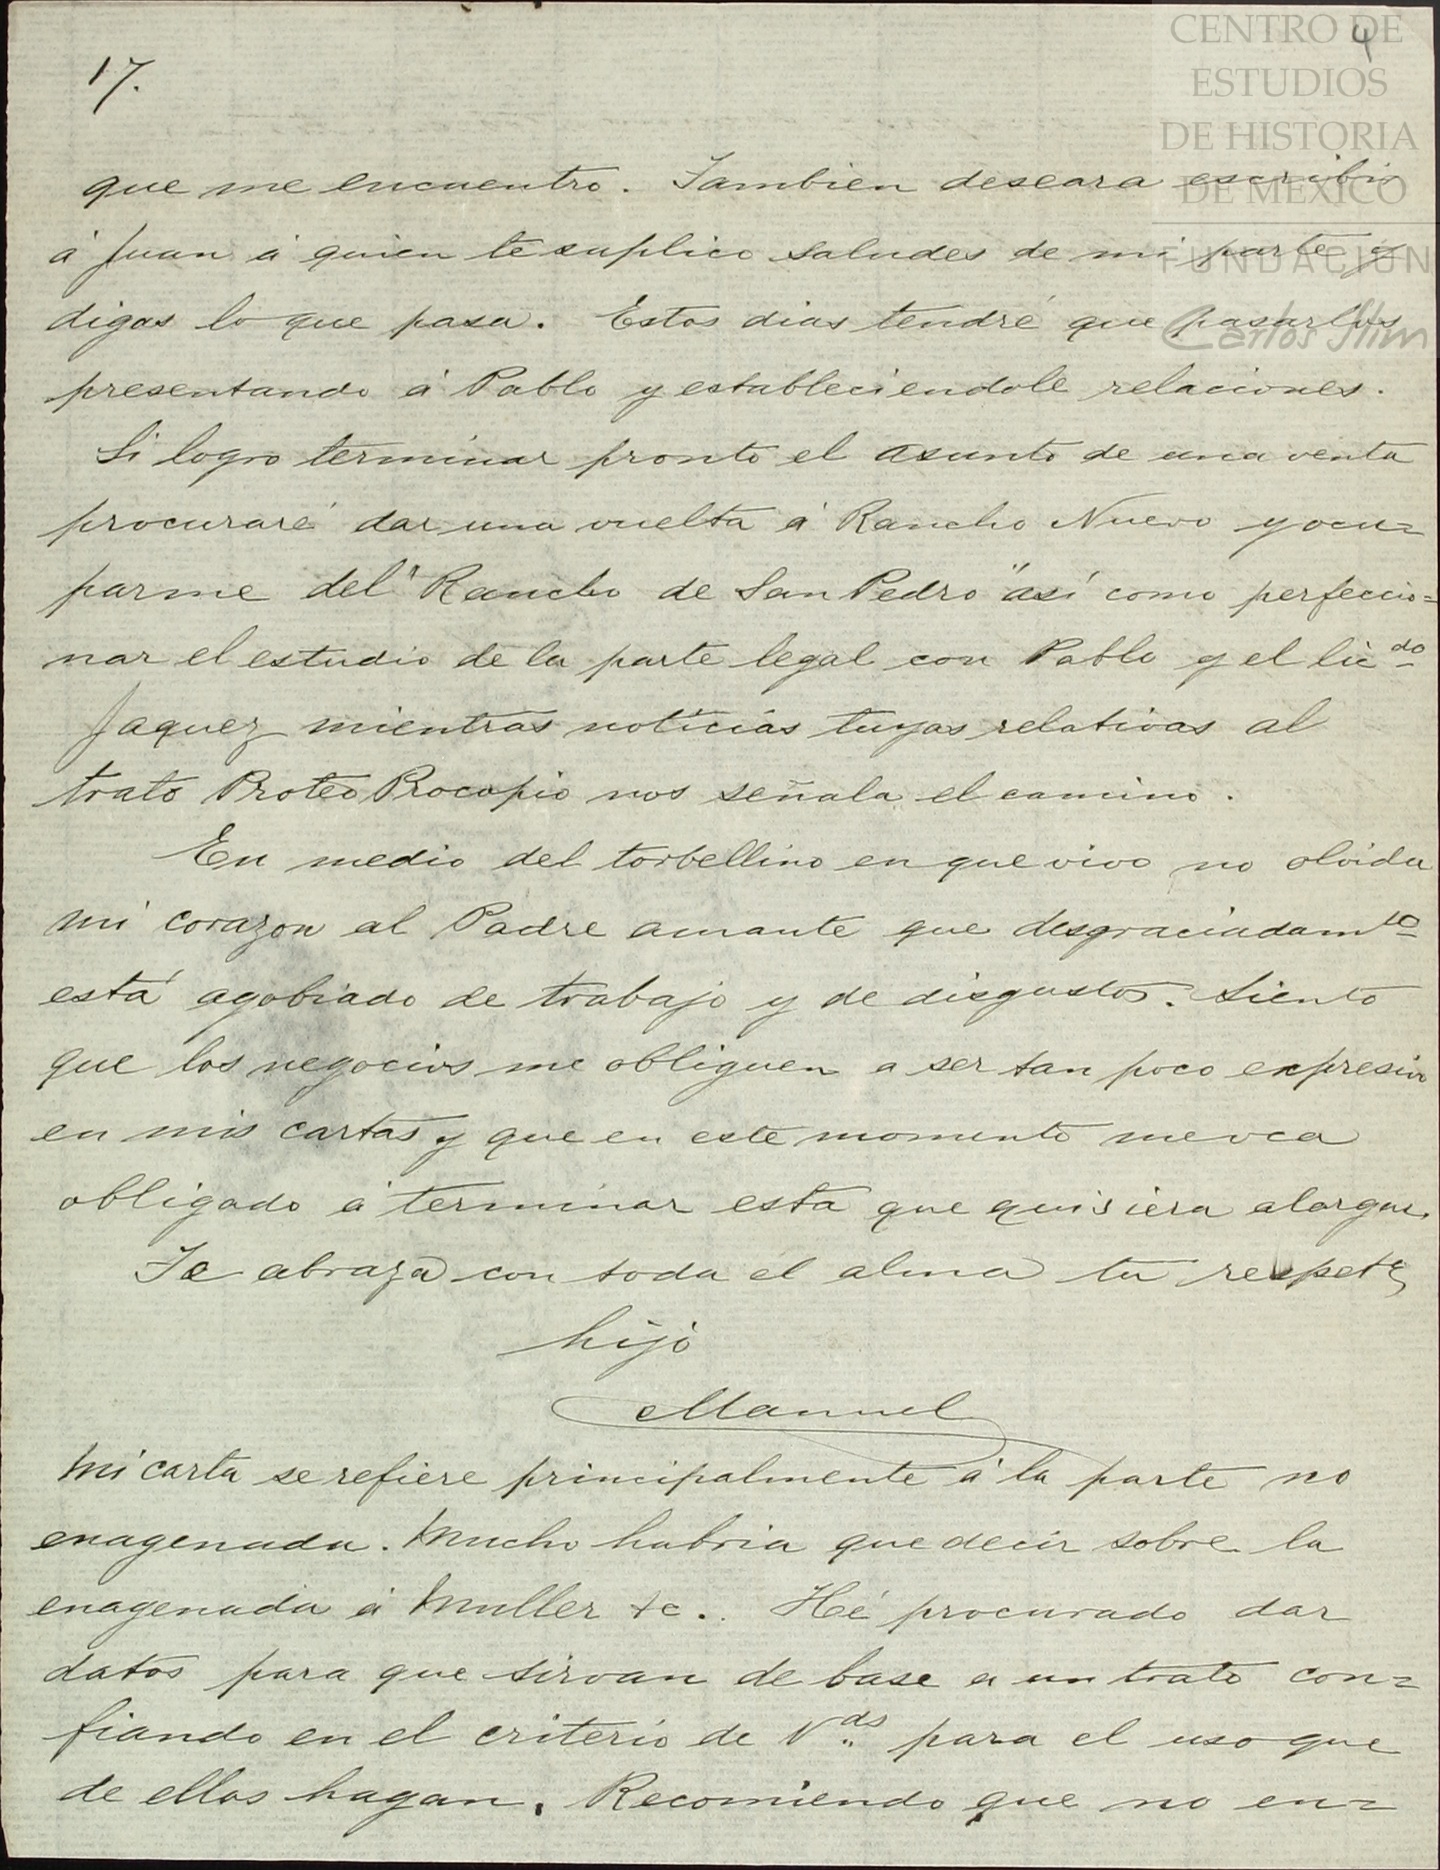 CENTRO DE
ESTUDIOS
DE HISTORIA
DE MEXICO
FUNDACION
Carlos Slim
4
17.
que me encuentro. Tambien deseara escribir
á Juan á quien te suplico saludes de mi parte y
digas lo que pasa. Estos dias tendré que pasarlos
presentando á Pablo y estableciendole relaciones.
Si logro terminar pronto el asunto de una venta
procuraré dar una vuelta á Rancho Nuevo y ocu=
parme del "Rancho de San Pedro" así como perfeccio=
nar el estudio de la parte legal con Pablo y el licdo
Jaquez mientras noticias tuyas relativas al
trato Proteo Procopio nos señala el camino.
En medio del torbellino en que vivo no olvida
mi corazon al Padre amante que desgraciadamte
está agobiado de trabajo y de disgustos. Siento
que los negocios me obliguen a ser tan poco expresivo
en mis cartas y que en este momento me vea
obligado á terminar esta que quisiera alargar.
Te abraza con toda el alma tu
hijo
Manuel
Mi carta se refiere principalmente á la parte no
enagenada. Mucho habria que decir sobre la
enagenada á Muller &c.. Hé procurado dar
datos para que sirvan de base a un trato con=
fiando en el criterio de Vds para el uso que
de ellos hagan. Recomiendo que no en=